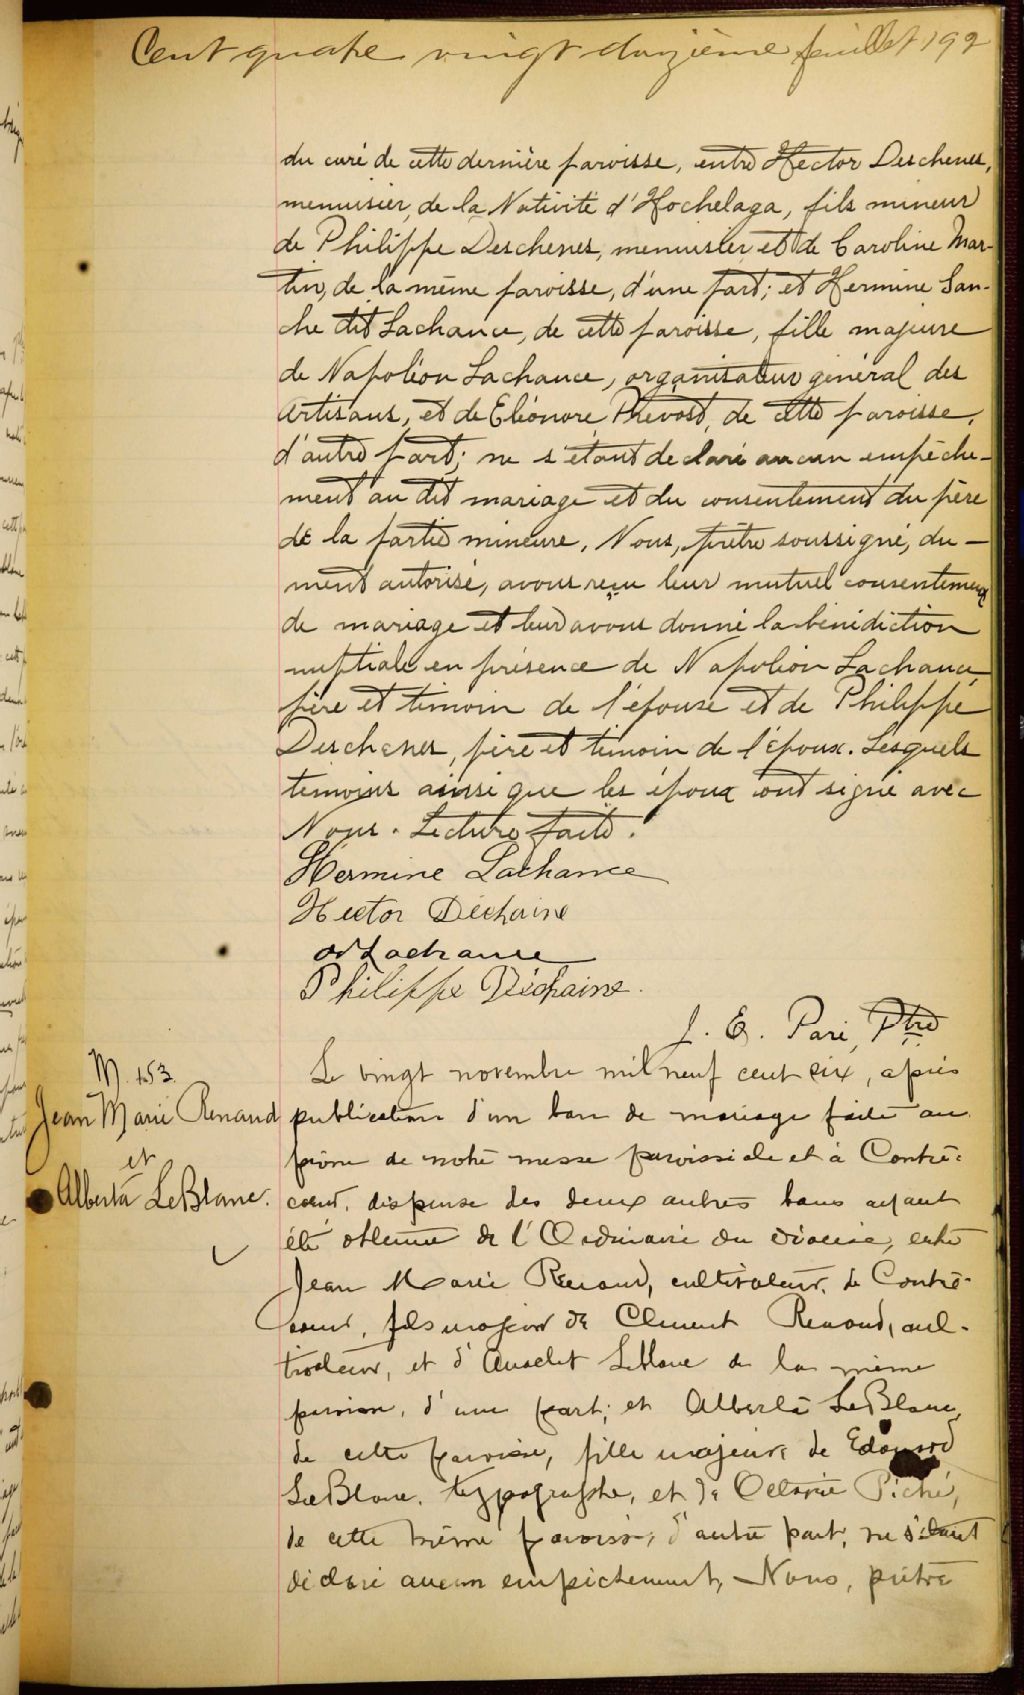 Cent quatre vingt douzième feuillet 192
du curé de cette dernière paroisse, entre Hector Deschenes,
menuisier, de la Nativité d'Hochelaga, fils mineur
de Philippe Deschenes, menuisier, et de Caroline Mar-
tin, de la même paroisse, d'une part; et Hermine San-
che dit Lachance, de cette paroisse, fille majeure
de Napoléon Lachance, organisateur général des
Artisans, et de Eléonore Prévost, de cette paroisse,
d'autre part; ne s'étant declaré aucun empêche-
ment au dit mariage et du consentement du père
de la partie mineure, Nous, prêtre soussigné, du-
ment autorisé, avons reçu leur mutuel consentement
de mariage et leur avons donné la bénédiction
nuptiale en présence de Napoléon Lachance,
père et témoin de l'épouse et de Philippe
Deschenes, père et témoin de l'époux. Lesquels
témoins ainsi que les époux ont signé avec
Nous. Lecture faite.
Hermine Lachance
Hector Dechaine
Lachance
Philippe Déchaine.
J. E. Paré, Ptre
M. 153.
Jean Marie Renaud
et
Alberta LeBlanc.
Le vingt novembre mil neuf cent six, après
publication d'un ban de mariage faite au
prône de notre messe paroissiale et à Contre-
coeur, dispense des deux autres bans ayant
été obtenue de l'Ordinaire du diocèse, entre
Jean Marie Renaud, cultivateur, de Contre-
coeur, fils majeur de Clement Renaud, cul-
tivateur, et d'Anaclet LeBlanc de la même
paroisse, d'une part; et Alberta LeBlanc,
de cette paroisse, fille majeure de Edouard
LeBlanc, typographe, et de Octavie Piché,
de cette même paroisse, d'autre part, ne s'étant
déclaré aucun empêchement, Nous, prêtre